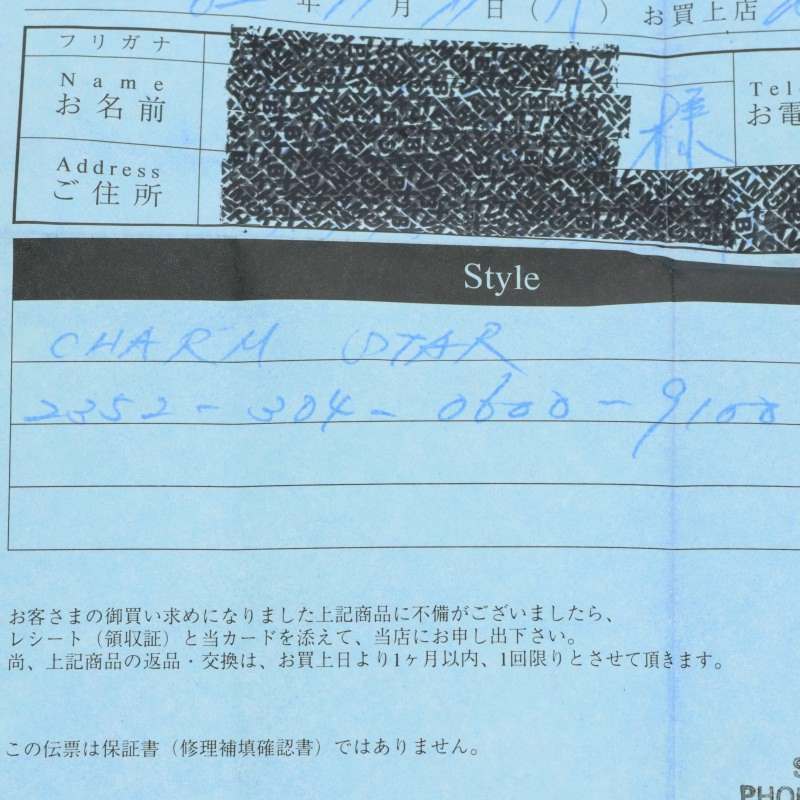 年 11月 11日( ) お買上店
フリガナ
Name
お名前 様
Tel
お電
Address
ご住所
Style
CHARM STAR
2352-304-0600-9100
お客さまの御買い求めになりました上記商品に不備がございましたら、
レシート(領収証)と当カードを添えて、当店にお申し出下さい。
尚、上記商品の返品・交換は、お買上日より1ヶ月以内、1回限りとさせて頂きます。
この伝票は保証書(修理補填確認書)ではありません。